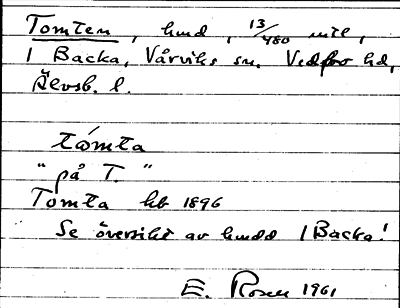 Tomten, hmd, 13/480 mtl,
1 Backa, Vårviks sn. Vedbo hd,
Älvsb. l.
tómta
"på T."
Tomta hb 1896
Se översikt av hmdd 1 Backa!
E. Rosen 1961